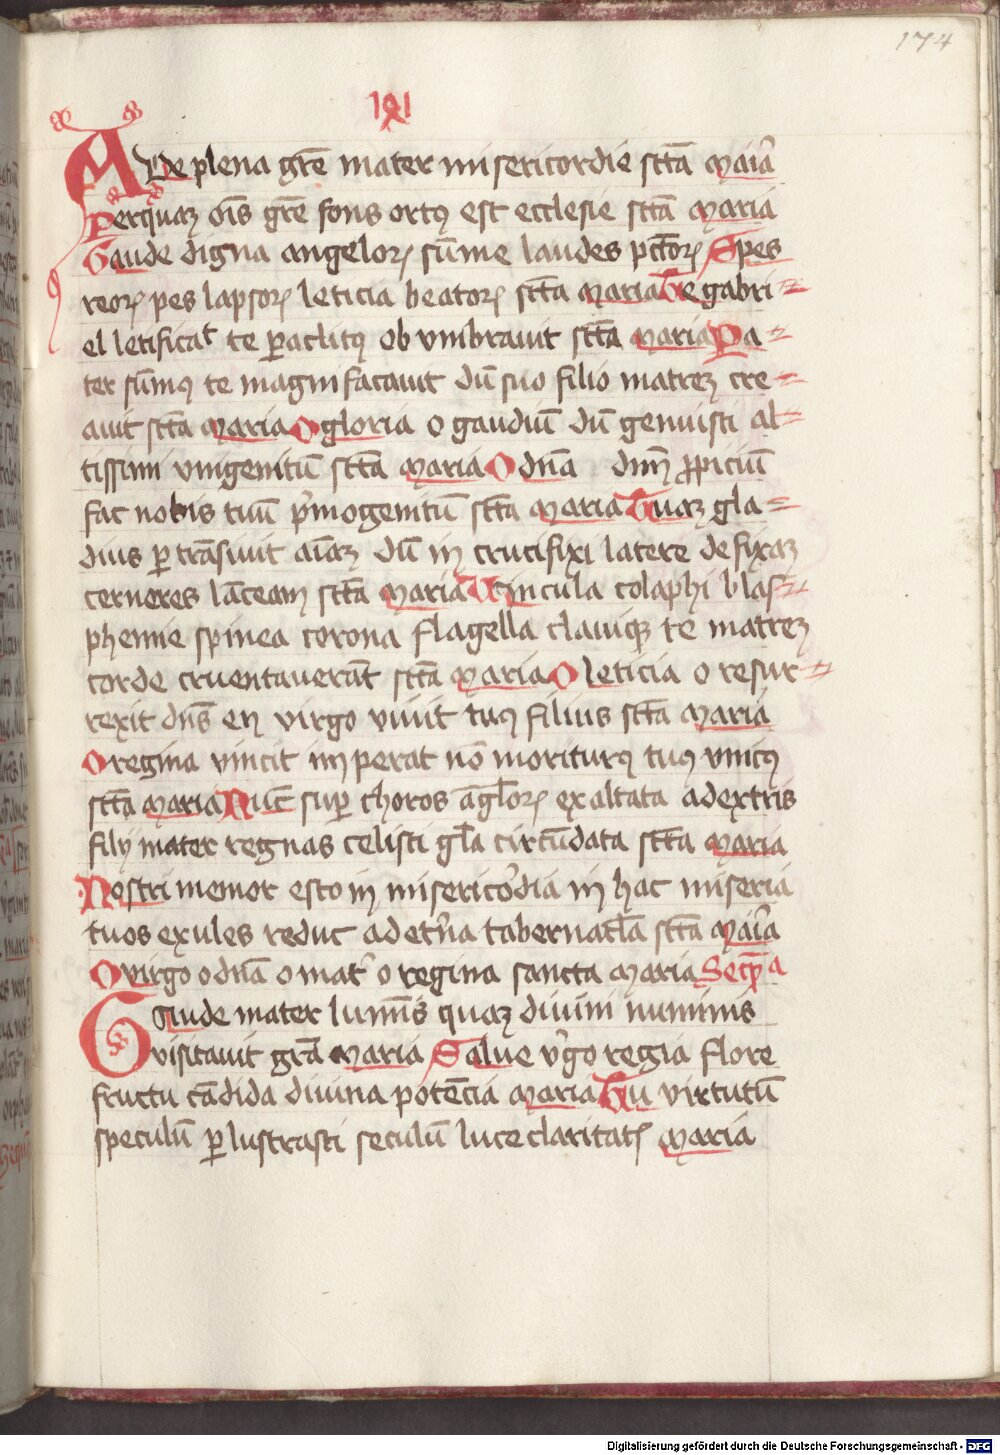 174
191
Aue plena gr̄e mater misericordie sct̄a Mar̄ia
Perquaꝫ oīs gr̄e fons ortꝰ est ecclesie sct̄a Maria
Gaude digna angeloꝝ sūme laudes pct̄oꝝ Spes
reoꝝ pes lapsoꝝ leticia beatoꝝ sct̄a Maria Te gabri=
el letificat te ꝑaclitꝰ obumbrauit sct̄a Maria Pa=
ter sūmꝰ te magnifacauit dū suo filio matreꝫ cre=
auit sct̄a Maria O gloria o gaudiū dū genuisti al=
tissimi vnigenitū sct̄a Maria O dn̄a dn̄m ꝓpiciū
fac nobis tuū p̄mogenitū sct̄a Maria Tuaꝫ gla=
dius ꝑtrāsiuit aīaꝫ dū in crucifixi latere defixaꝫ
cerneres lāceam sct̄a Maria Vincula colaphi blas=
phemie spinea corona flagella clauiqꝫ te matreꝫ
corde cruentauerāt sct̄a Maria O leticia o resur=
rexit dn̄s en virgo viuit tuꝰ filius sct̄a Maria
O regina vincit imperat nō moriturꝰ tuꝰ vnicꝰ
sct̄a Maria Nūc suꝑ choros āgloꝝ exaltata adextris
filij mater regnas celisti gl̄a circūdata sct̄a Maria
Nostri memor esto in misericordia in hac miseria
tuos exules reduc ad et̄na tabernacl̄a sct̄a Mar̄ia
O virgo o dn̄a o mat̄ o regina sancta Maria Secp̄a
Gaude mater lumīs quaꝫ diuini numinis
visitauit gr̄a Maria Salue v̄go regia flore
fructu cādida diuina potēcia Maria Tu virtutū
speculū ꝑlustrasti seculū luce claritatꝭ Maria
Digitalisierung gefördert durch die Deutsche Forschungsgemeinschaft - DFG